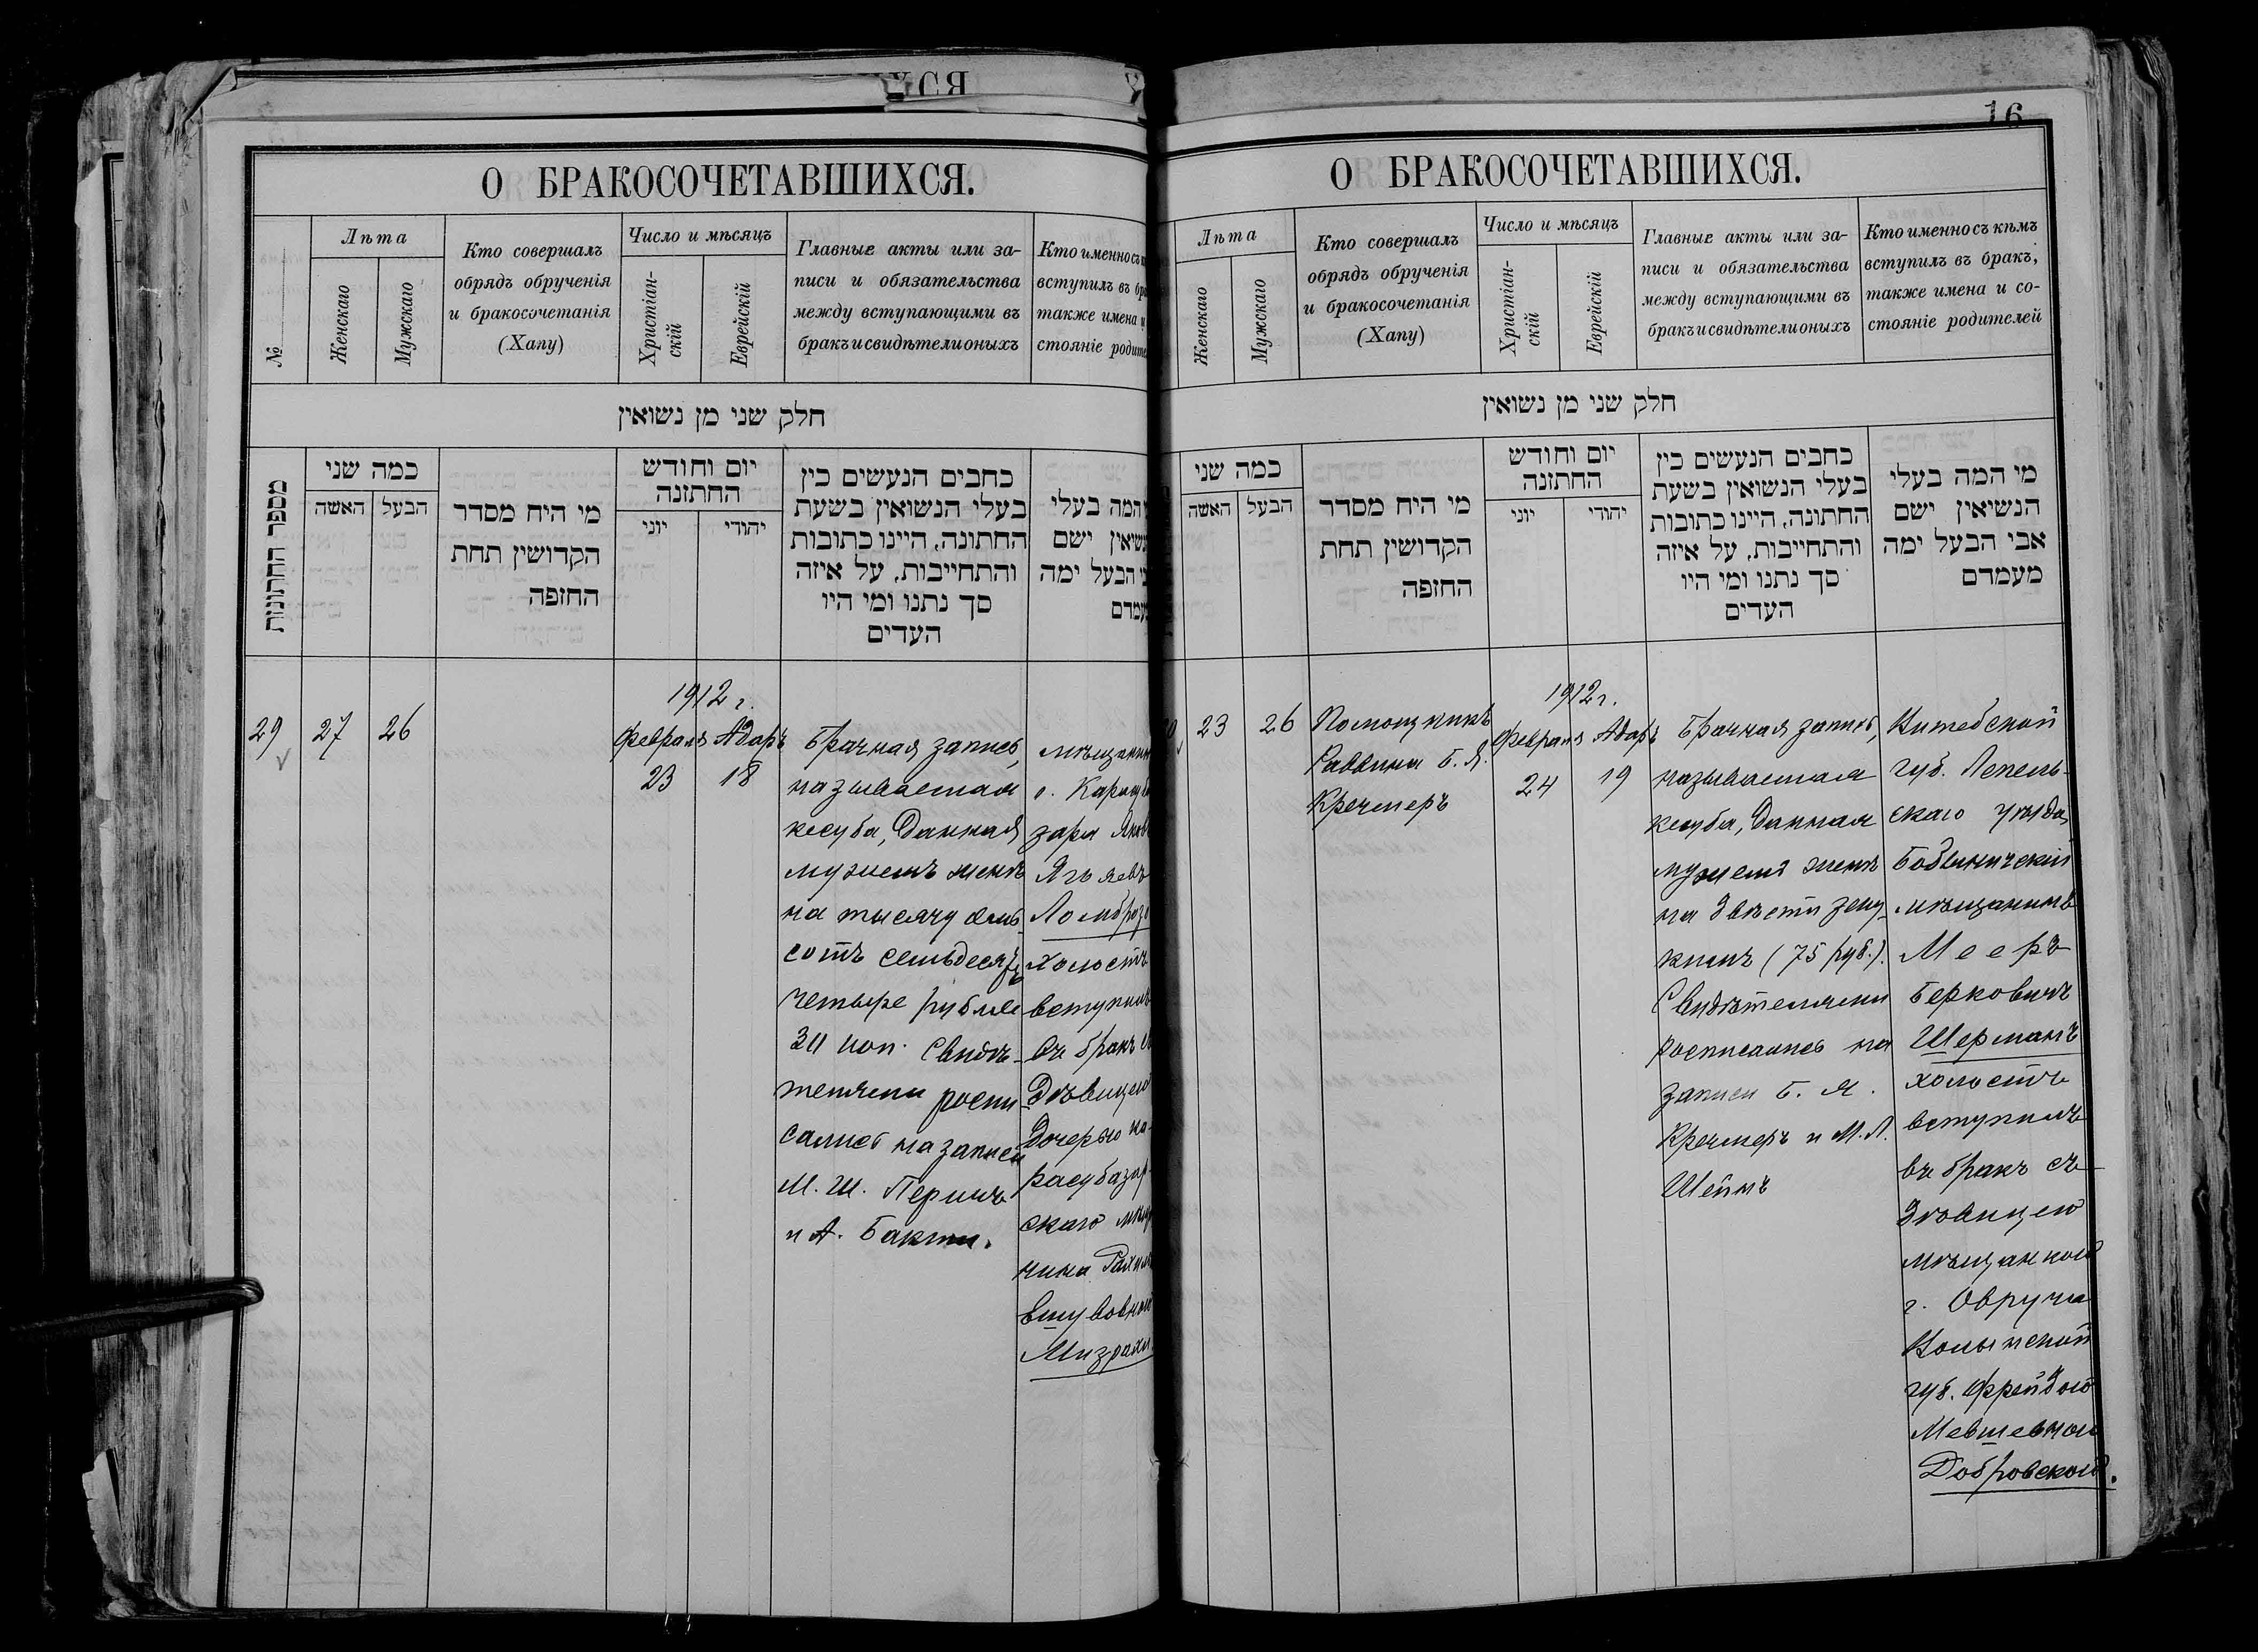 16
О БРАКОСОЧЕТАВШИХСЯ.
№
Лѣта
Женскаго
Мужскаго
Кто совершалъ
обрядъ обрученія
и бракосочетанія
(Хапу)
Число и мѣсяцъ
Христіан-
скій
Еврейскій
Главные акты или за-
писи и обязательства
между вступающими въ
бракъ и свидѣтели оныхъ
Кто именно съ
вступилъ въ
также имена
стояніе
חלק שני מן נשואין
מספר החתונות
כמה שני
האשה
הבעל
מי היח מסדר
הקדושין תחת
החזפה
יום וחודש
החתזנה
יוני
יהודי
כחבים הנעשים כין
בעלי הנשואין בשעת
החתונה, היינו כתובות
והתחייבות, על איזה
סך נתנו ומי היו
העדים
המה בעלי
ישם
הבעל ימה
29
27
26
1912 г.
Февраля Адаръ
23 18
Брачная запись,
называемая
кесуба, данная
мужемъ женѣ
на тысячу
сотъ семьдесятъ
четыре рубля
коп. Свидѣ-
телями роспи
сались на записи
М. Ш. Перичъ
и А. Бакши.
г.
Ломброзо
холостъ
вступилъ
въ бракъ
Дѣвицею
Дочерью Ка-
расубазар-
скаго
нина
Мизрахи
О БРАКОСОЧЕТАВШИХСЯ.
Лѣта
Женскаго
Мужскаго
Кто совершалъ
обрядъ обрученія
и бракосочетанія
(Хапу)
Число и мѣсяцъ
Христіан-
скій
Еврейскій
Главные акты или за-
писи и обязательства
между вступающими въ
бракъ и свидѣтели оныхъ
Кто именно съ кѣмъ
вступилъ въ бракъ,
также имена и со-
стояніе родителей
חלק שני מן נשואין
כמה שני
האשה
הבעל
מי היח מסדר
הקדושין תחת
החזפה
יום וחודש
החתזנה
יוני
יהודי
כחבים הנעשים כין
בעלי הנשואין בשעת
החתונה, היינו כתובות
והתחייבות, על איזה
סך נתנו ומי היו
העדים
מי המה בעלי
הנשיאין ישם
אבי הבעל ימה
מעמדם
23
26
Помощникъ
Раввина Б. Я.
Кречмеръ
1912 г.
Февраля Адаръ
24 19
Брачная запись,
называемая
кесуба, данная
мужемъ женѣ
на двѣсти зеку-
кимъ (75 руб.).
Свидѣтелями
росписались на
записи Б. Я.
Кречмеръ и М. Л.
Шейнъ
Витебской
губ. Лепель-
скаго уѣзда,
мѣщанинъ
Мееръ
Берковичъ
Шерманъ
холостъ
вступилъ
въ бракъ съ
дѣвицею
мѣщанкой
г. Овруча
Волынской
губ. Фрейдою
Мевшевною
Добровскою.